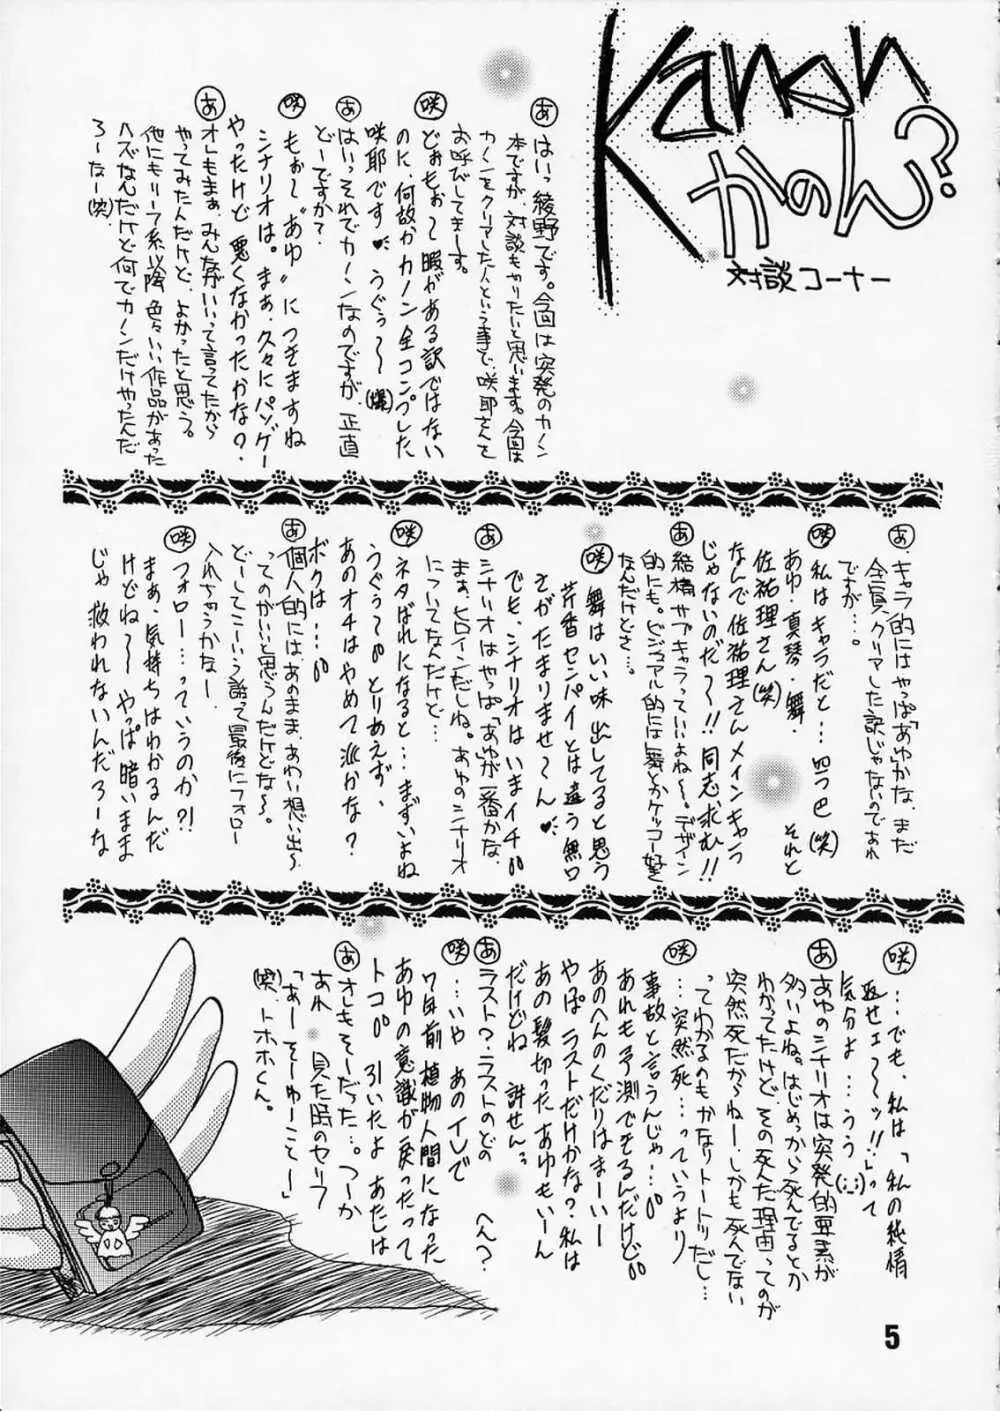 Kanon
かのん?
対談コーナー
あ はいっ綾野です。今回は突発のカノン
本ですが、対談もやりたいと思います。今回は
カノンをクリアした人という事で、咲耶さんを
お呼びしてまーす。
咲 どぉもぉ〜暇がある訳ではない
のに、何故かカノン全コンプした
咲耶です♥うぐぅ〜〜(爆)
あ はいっそれでカノンなのですが、正直
どーですか?
咲 もぉ〜"あゆ"につきますね
シナリオは。まぁ、久々にパソゲー
やったけど悪くなかったかな?
あ オレもまぁ、みんながいいって言ってたから
やってみたんだけど、よかったと思う。
他にもリーフ系以降色々いい作品があった
ハズなんだけど何でカノンだけやったんだ
ろーなー(笑)
あ.キャラ的にはやっぱ「あゆ」かな、まだ
全員クリアした訳じゃないのであれ
ですが…。
咲 私はキャラだと…四つ巴(笑)
あゆ・真琴・舞・それと
佐祐理さん(笑)
なんで佐祐理さんメインキャラ
じゃないのだ〜!!同志求む!!
あ 結構サブキャラっていいよね〜。デザイン
的にも。ビジュアル的には舞とかケッコー好き
なんだけどさ…。
咲 舞はいい味出してると思う
芹香センパイとは違う無口
さがたまりませ〜ん♥
でも、シナリオはいまイチ
あ シナリオはやっぱ「あゆ」が一番かな、
まぁ、ヒロインだしね。あゆのシナリオ
についてなんだけど…
咲 ネタばれになると…まずいよね
うぐぅ〜 とりあえず、
あのオチはやめて欲しかな?
ボクは…。
あ 個人的には、あのまま、あわい想い出〜
ってのがいいと思うんだけどな〜。
どーしてこーいう話って最後にフォロー
入れちゃうかなー
咲 フォロー…っていうのか?!
まぁ、気持ちはわかるんだ
けどね〜〜 やっぱ暗いまま
じゃ救われないんだろーな
咲 …でも、私は「私の純情
返せェ〜〜ッ!!」って
気分よ…うう(;;)
あ あゆのシナリオは突発的要素が
多いよね。はじめっから死んでるとか
わかってたけど、その死んだ理由ってのが
突然死だからねー、しかも死んでない
ってわかるのもかなりトートツだし…
咲 …突然死…っていうより
事故と言うんじゃ…
あれも予測できるんだけど
あのへんのくだりはまーいー
やっぱラストだけかな?私は
あの髪切ったあゆもいーん
だけどね 許せん
あ ラスト?ラストのどのへん?
咲 …いや あのイレで
7年前植物人間になった
あゆの意識が戻ったって
トコ 引いたよ あたしは
あ オレもそーだった…。つーか
あれ 見た時のセリフ
「あーそーゆーことー」
(笑)、トホホくん。
5